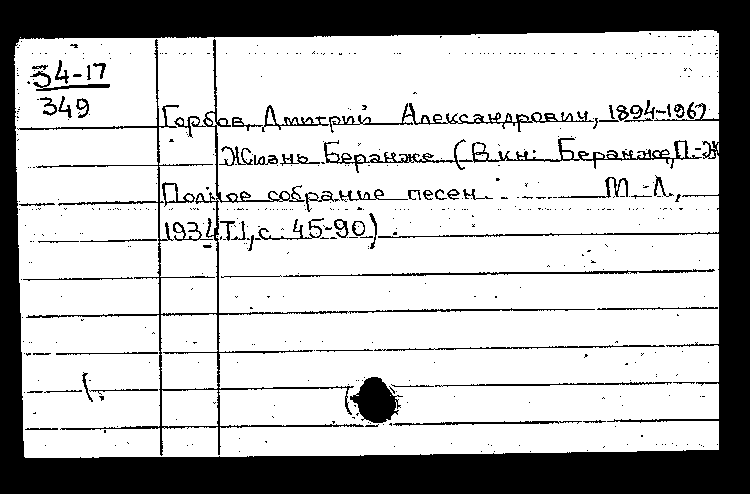 34-17
349
Горбов, Дмитрий Александрович, 1894-1967
Жизнь Беранже (В кн: Беранже, П.-Ж
Полное собрание песен. М.-Л.,
1934 Т.1, с. 45-90).